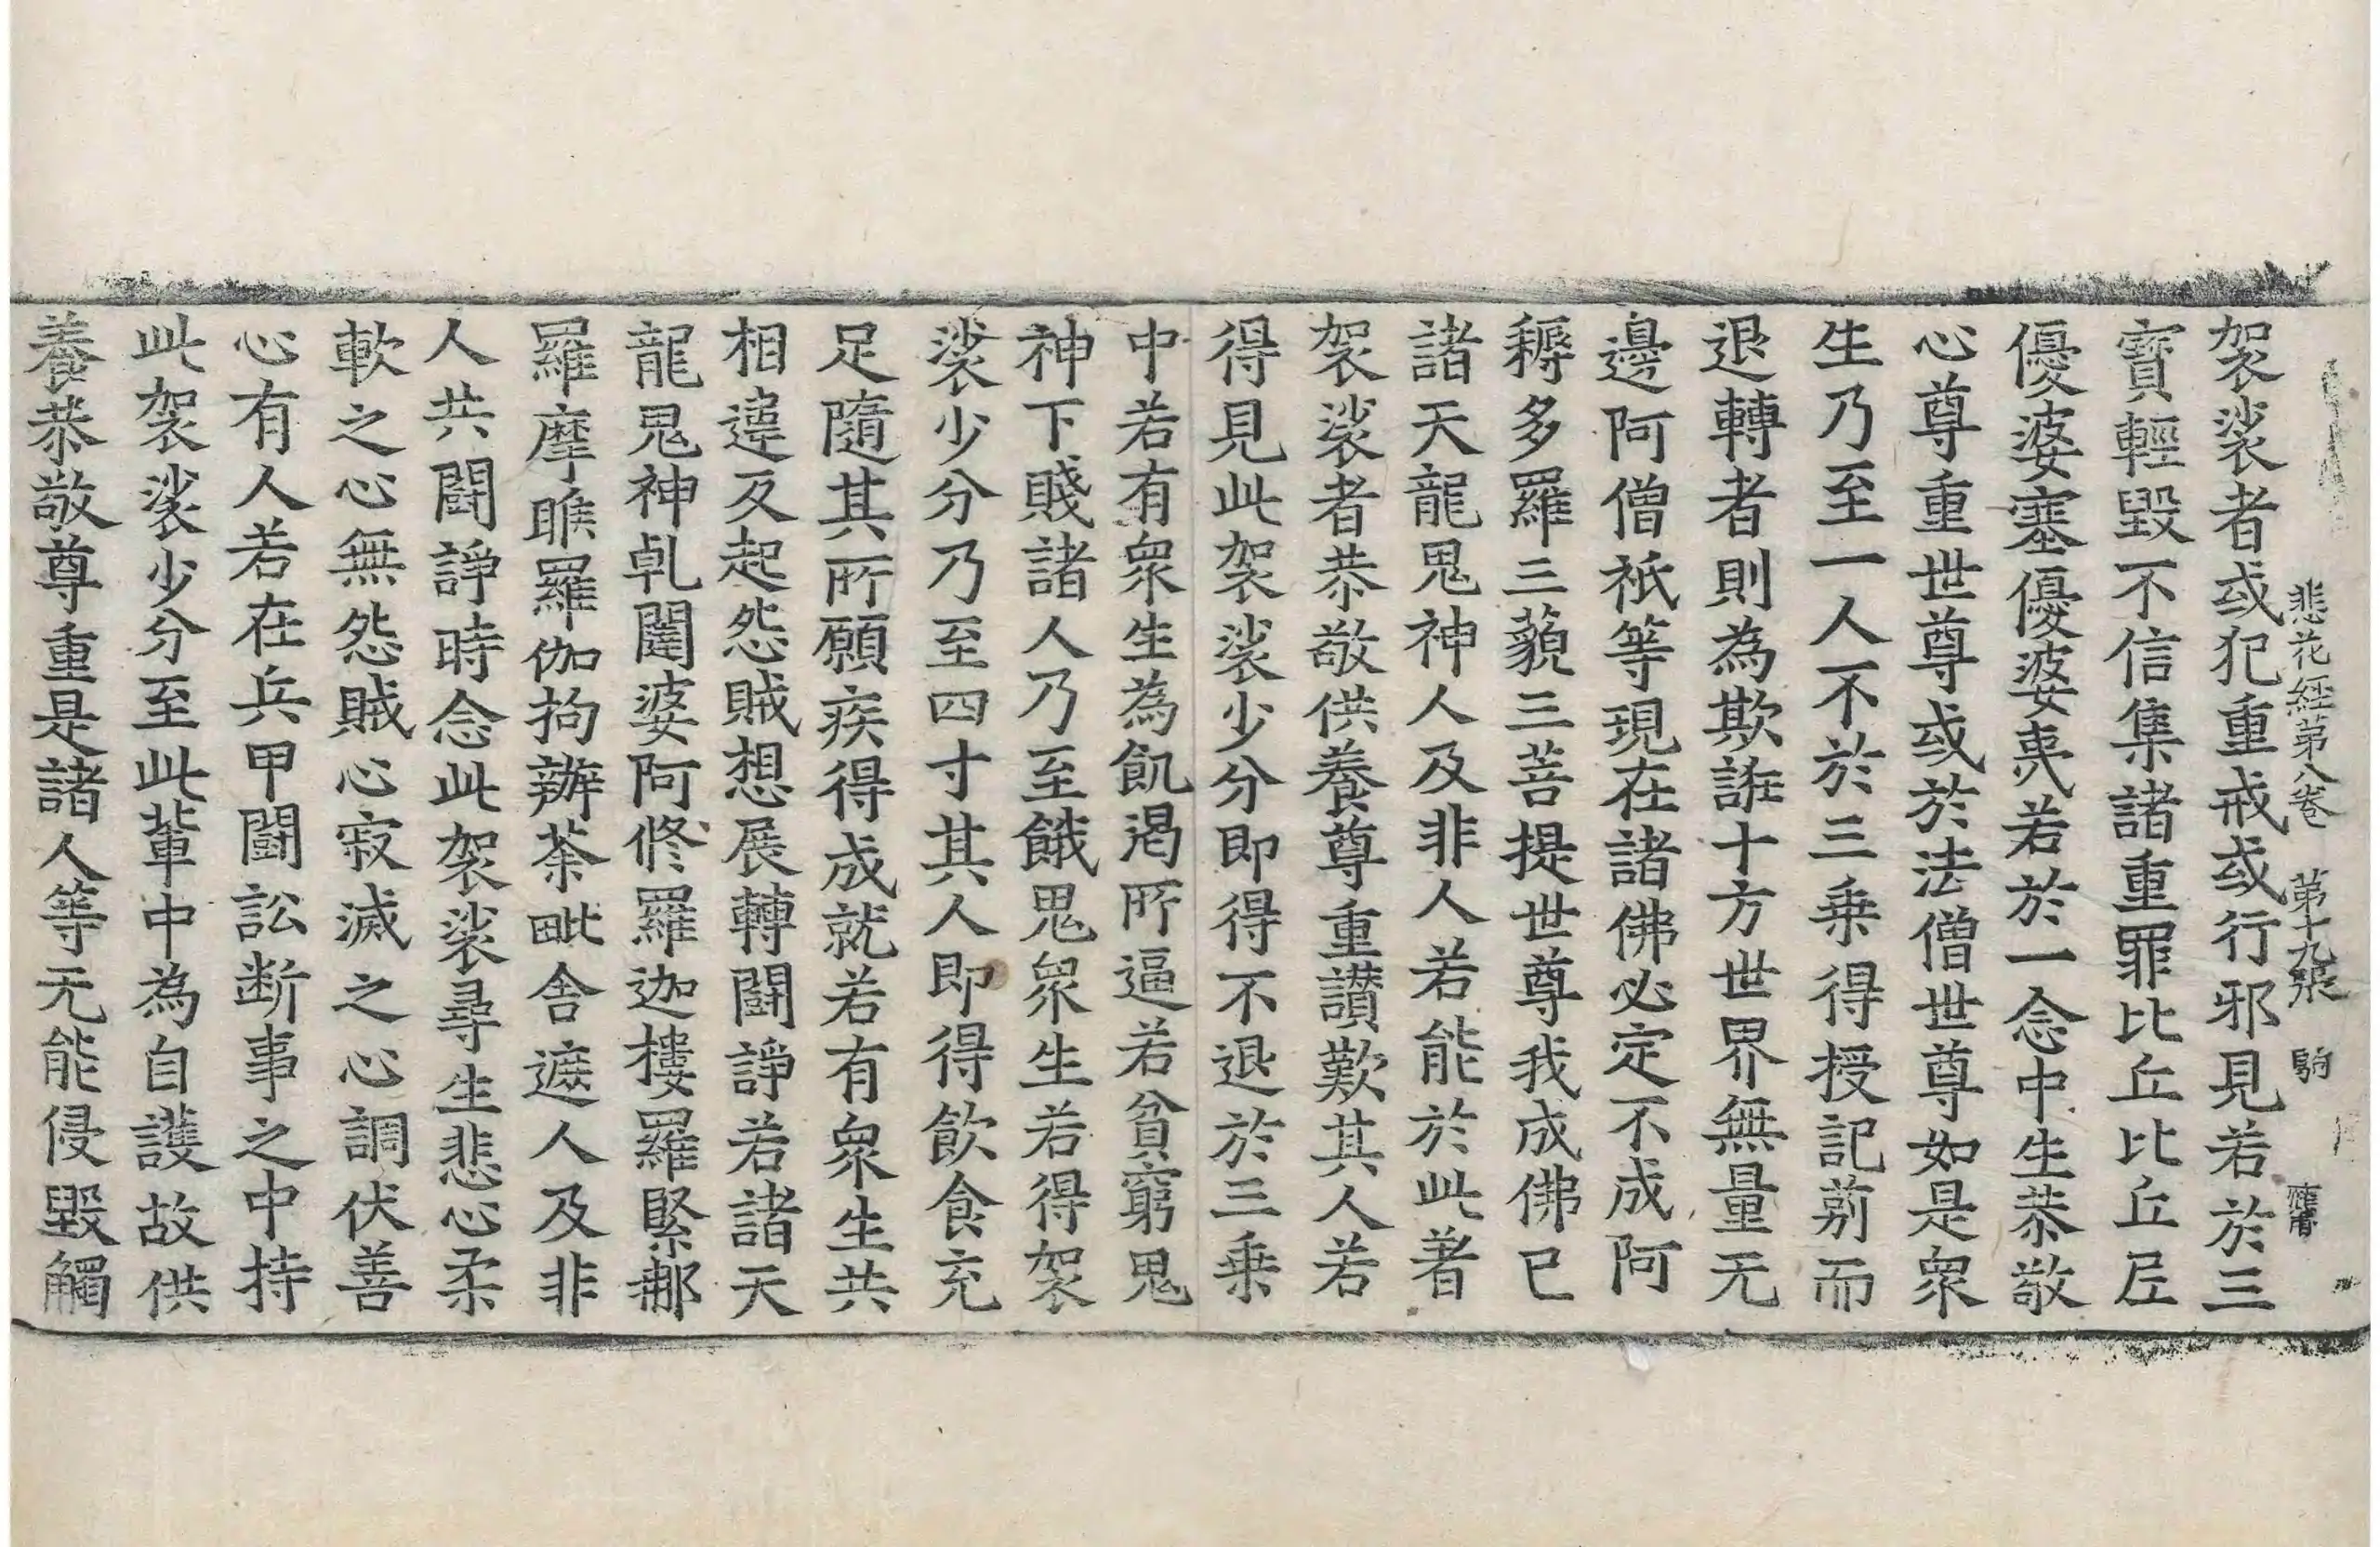 悲花経第八卷　第十九張　駒
袈裟者或犯重戒或行邪見若於三
寶輕毀不信集諸重罪比丘比丘𡰱
優婆塞優婆夷若於一念中生恭敬
心尊重世尊或於法僧世尊如是衆
生乃至一人不於三乗得授記莂而
退轉者則為欺誑十方世界無量无
邊阿僧祇等現在諸佛必定不成阿
耨多羅三藐三菩提世尊我成佛已
諸天龍鬼神人及非人若能於此著
袈裟者恭敬供養尊重讃歎其人若
得見此袈裟少分即得不退於三乗
中若有衆生為飢渴所逼若貧窮鬼
神下賤諸人乃至餓鬼衆生若得袈
裟少分乃至四寸其人即得飲食充
足隨其所願疾得成就若有衆生共
相違反起怨賊想展轉鬪諍若諸天
龍鬼神乹闥婆阿修羅迦樓羅緊那
羅摩睺羅伽拘辦荼毗舍遮人及非
人共鬪諍時念此袈裟尋生悲心柔
軟之心無怨賊心寂滅之心調伏善
心有人若在兵甲鬪訟断事之中持
此袈裟少分至此輩中為自護故供
養恭敬尊重是諸人等无能侵毀觸